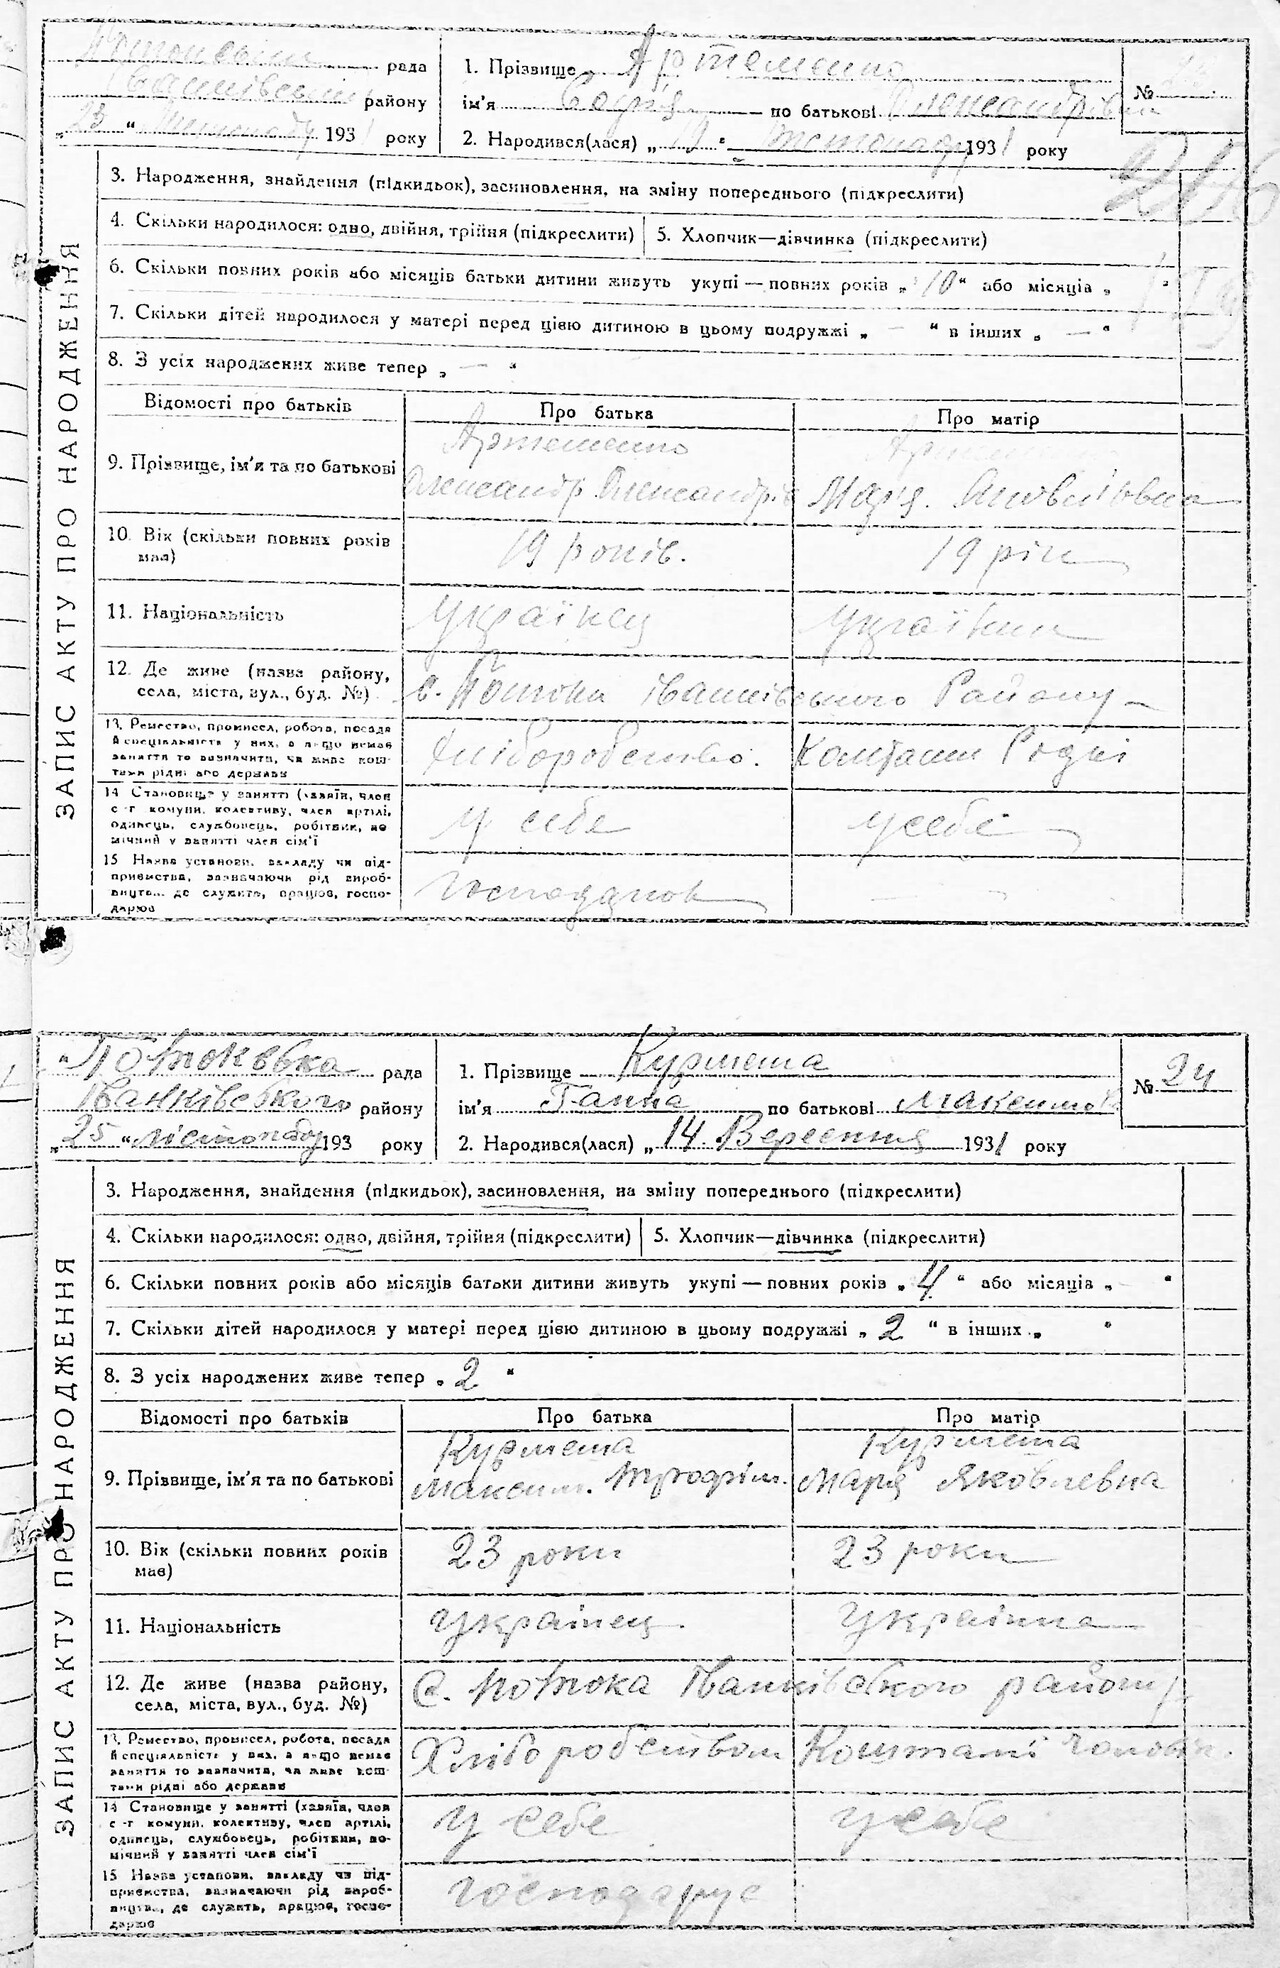 рада
району
„ 23 “ листопаду 1931 року
1. Прізвище Артеменко
ім'я Софія по батькові Олександрівна
2. Народився(лася) „ 19 “ листопаду 1931 року
№
ЗАПИС АКТУ ПРО НАРОДЖЕННЯ
3. Народження, знайдення (підкидьок), засиновлення, на зміну попереднього (підкреслити)
4. Скільки народилося: одно, двійня, трійня (підкреслити)
5. Хлопчик—дівчинка (підкреслити)
6. Скільки повних років або місяців батьки дитини живуть укупі — повних років „ 10 “ або місяців „ “
7. Скільки дітей народилося у матері перед цією дитиною в цьому подружжі „ — “ в інших „ — “
8. З усіх народжених живе тепер „ — “
Відомості про батьків
Про батька
Про матір
9. Прізвище, ім'я та по батькові
Артеменко
Олександр Олександрів
Марія Яковлівна
10. Вік (скільки повних років має)
19 років.
19 рік
11. Національність
Українец
Українка
12. Де живе (назва району,
села, міста, вул., буд. №)
с. Потоки Іванківського Району
13. Ремество, промисел, робота, посада
й спеціяльність у них, а якщо немає
заняття то зазначити, чи живе кош-
тами рідні або держави
Хліборобство.
Коштами Рідні
14 Становище у занятті (хазяїн, член
с.-г комуни, колективу, член артілі,
одинець, службовець, робітник, по-
мічний у занятті член сім'ї
У себе
у себе
15 Назва установи, закладу чи під-
приємства, зазначаючи рід вироб-
ництв., де служить, працює, госпо-
дарює
Потоковска рада
Іванківського району
„ 25 “ лістопаду 193 року
1. Прізвище Курмета
ім'я Ганна по батькові Максимов
2. Народився(лася) „ 14. Вересния 1931 року
№ 24
ЗАПИС АКТУ ПРО НАРОДЖЕННЯ
3. Народження, знайдення (підкидьок), засиновлення, на зміну попереднього (підкреслити)
4. Скільки народилося: одно, двійня, трійня (підкреслити)
5. Хлопчик—дівчинка (підкреслити)
6. Скільки повних років або місяців батьки дитини живуть укупі — повних років „ 4 “ або місяців „ — “
7. Скільки дітей народилося у матері перед цією дитиною в цьому подружжі „ 2 “ в інших „ “
8. З усіх народжених живе тепер „ 2 “
Відомості про батьків
Про батька
Про матір
9. Прізвище, ім'я та по батькові
Курмета
Максим. Трофім.
Курмета
Марія Яковлевна
10. Вік (скільки повних років
має)
23 роки
23 роки
11. Національність
Українец
Українка
12. Де живе (назва району,
села, міста, вул., буд. №)
С. Потока Іванківського району
13. Ремество, промисел, робота, посада
й спеціяльність у них, а якщо немає
заняття то зазначити, чи живе кош-
тами рідні або держави
Хліборобством
Коштамі Чоловік.
14 Становище у занятті (хазяїн, член
с.-г комуни, колективу, член артілі,
одинець, службовець, робітник, по-
мічний у занятті член сім'ї
У себе
У себе
15 Назва установи, закладу чи під-
приємства, зазначаючи рід вироб-
ництва, де служить, працює, госпо-
дарює
Господарує